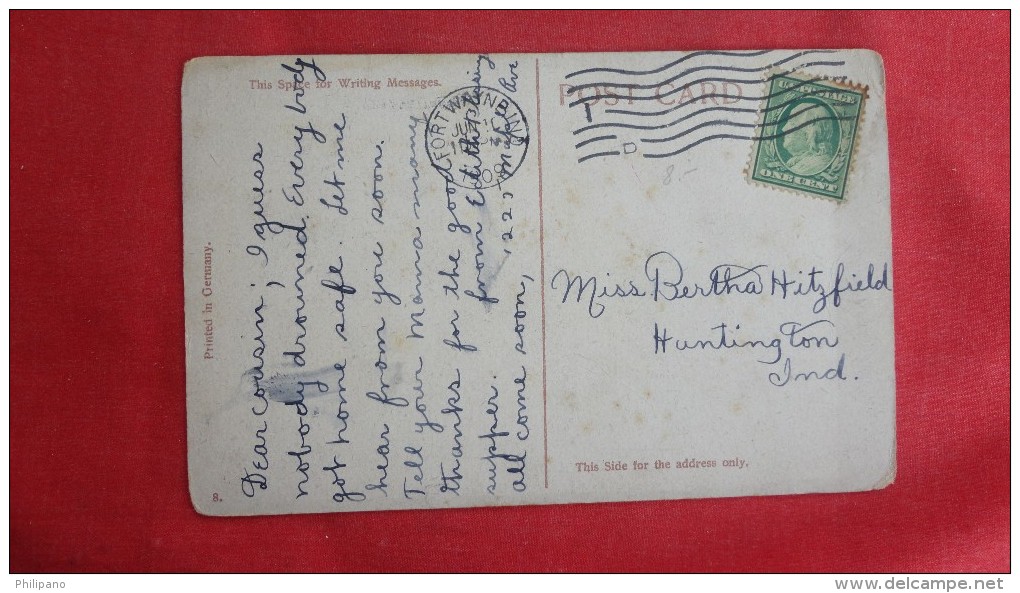 This Space for Writing Messages.
Dear cousin; I guess
nobody drowned. Every body
got home safe. Let me
hear from you soon.
Tell your Mama many
thanks for the good
supper. from Edith
all come soon, 1227 Maple Ave
Printed in Germany.
8.
POST CARD
FORT WAYNE, IND.
U.S. POSTAGE
ONE CENT
D
8.-
Miss Bertha Hitzfield
Huntington
Ind.
This Side for the address only.
Philipano
www.delcampe.net